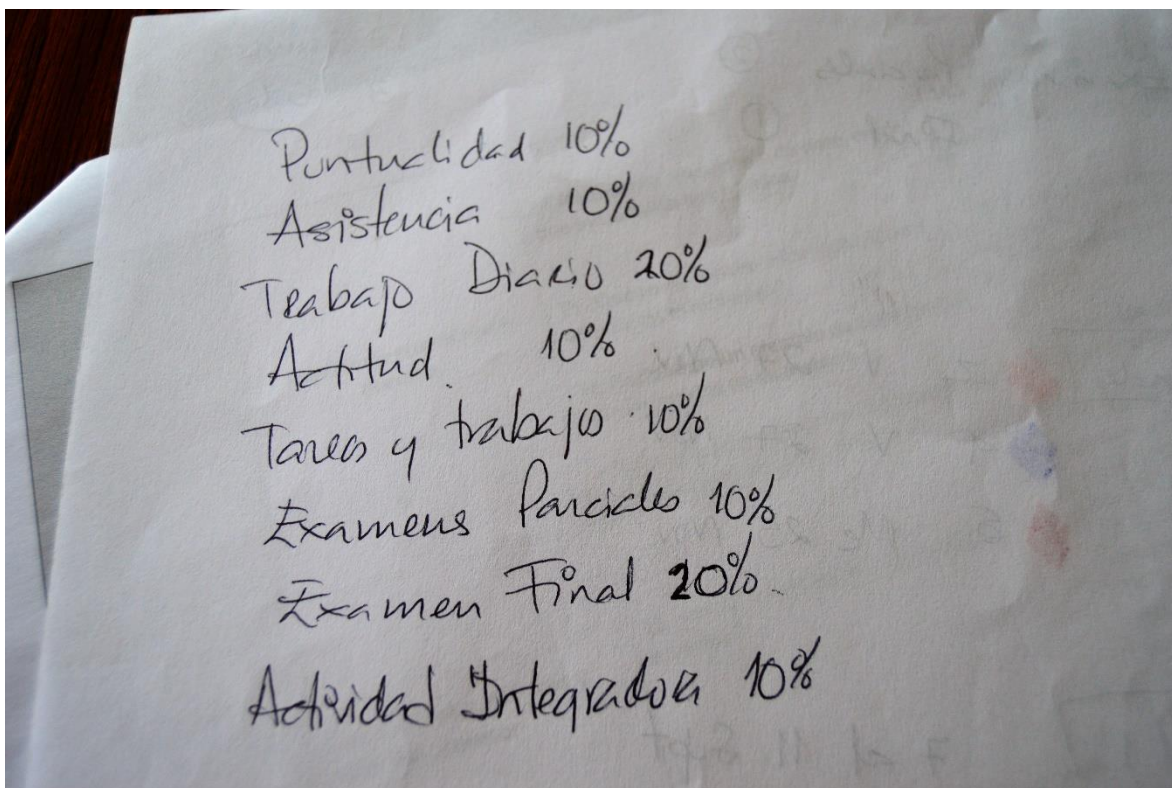 Puntualidad 10%
Asistencia 10%
Trabajo Diario 20%
Actitud. 10%.
Tareas y trabajos. 10%
Examens Parciales 10%
Examen Final 20%.
Actividad Integradora 10%
7 al 11 Sept